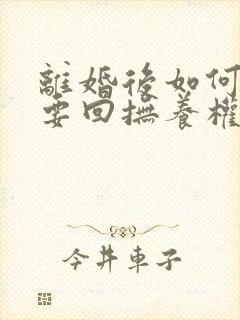 離婚後如何
要回撫養權
今井車子